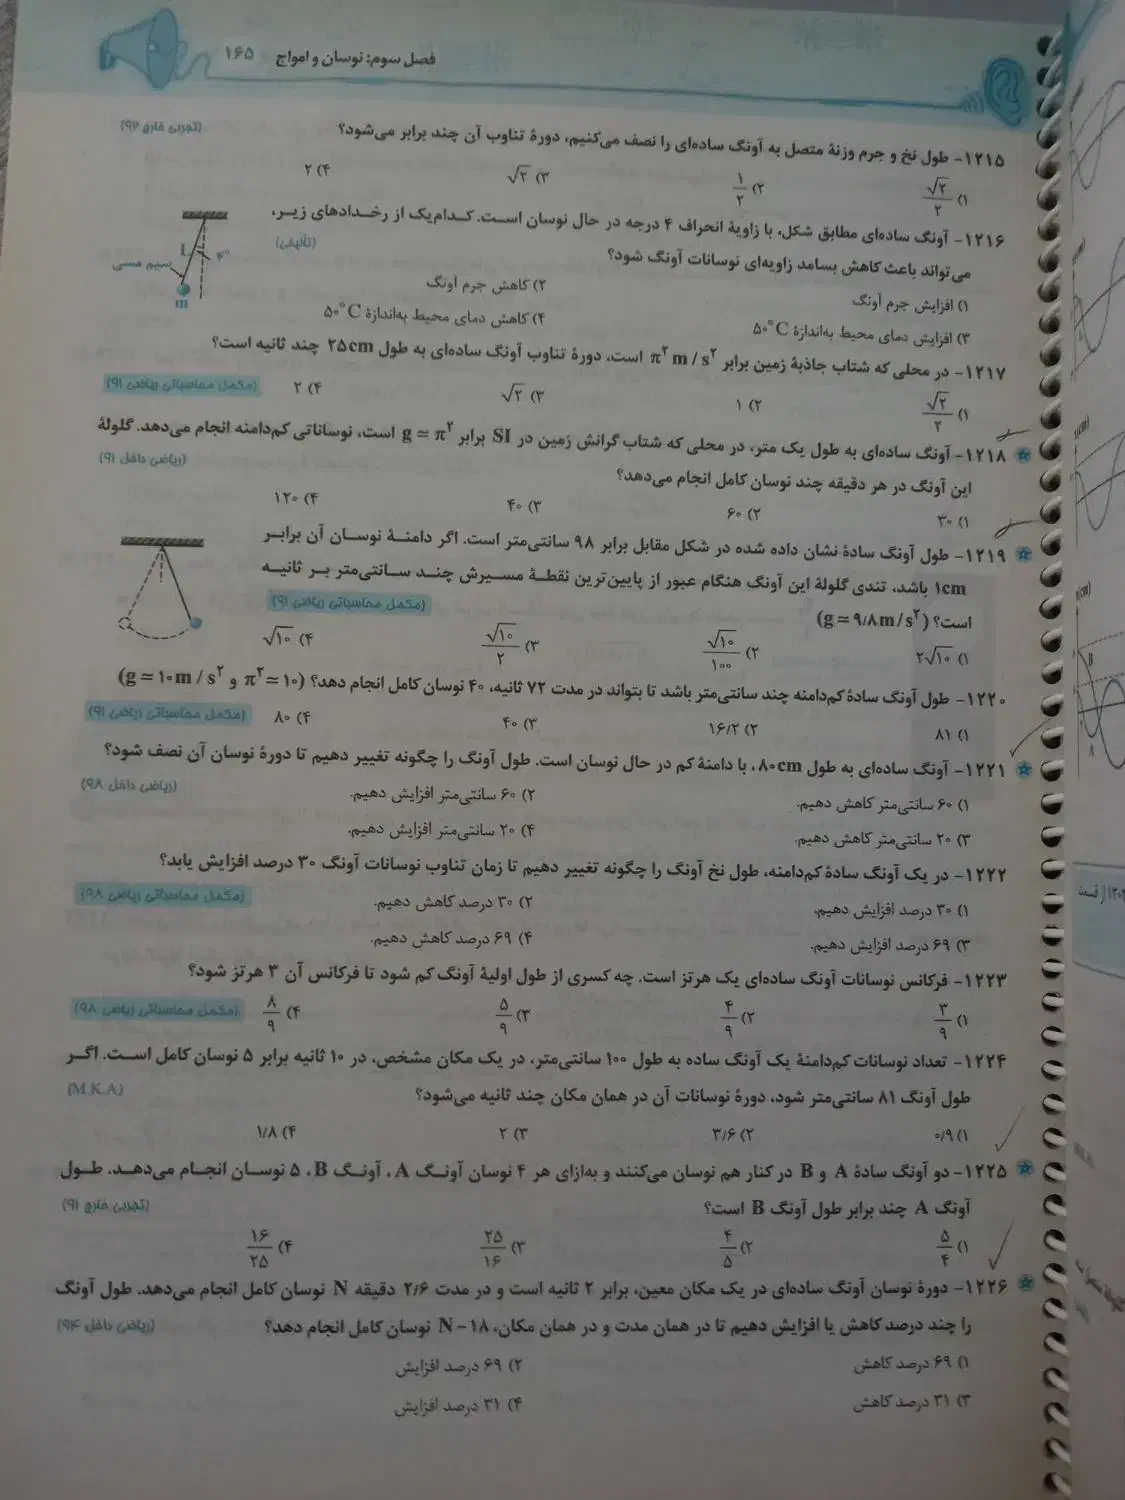 فصل سوم: نوسان و امواج ۱۶۵
۱۲۱۵- طول نخ و جرم وزنهٔ متصل به آونگ ساده‌ای را نصف می‌کنیم، دورهٔ تناوب آن چند برابر می‌شود؟ (تجربی خارج ۹۷)
۱) √۲/۲ ۲) ۱/۲ ۳) √۲ ۴) ۲
۱۲۱۶- آونگ ساده‌ای مطابق شکل، با زاویهٔ انحراف ۴ درجه در حال نوسان است. کدام‌یک از رخدادهای زیر،
می‌تواند باعث کاهش بسامد زاویه‌ای نوسانات آونگ شود؟ (تألیفی)
۱) افزایش جرم آونگ ۲) کاهش جرم آونگ
۳) افزایش دمای محیط به‌اندازهٔ ۵۰°C ۴) کاهش دمای محیط به‌اندازهٔ ۵۰°C
L ۴°
سیم مسی
m
۱۲۱۷- در محلی که شتاب جاذبهٔ زمین برابر π² m/s² است، دورهٔ تناوب آونگ ساده‌ای به طول ۲۵cm چند ثانیه است؟
۱) √۲/۲ ۲) ۱ ۳) √۲ ۴) ۲ (مکمل محاسباتی ریاضی ۹۱)
۱۲۱۸- آونگ ساده‌ای به طول یک متر، در محلی که شتاب گرانش زمین در SI برابر g = π² است، نوساناتی کم‌دامنه انجام می‌دهد. گلولهٔ
این آونگ در هر دقیقه چند نوسان کامل انجام می‌دهد؟ (ریاضی داخل ۹۱)
۱) ۳۰ ۲) ۶۰ ۳) ۴۰ ۴) ۱۲۰
۱۲۱۹- طول آونگ سادهٔ نشان داده شده در شکل مقابل برابر ۹۸ سانتی‌متر است. اگر دامنهٔ نوسان آن برابر
۱cm باشد، تندی گلولهٔ این آونگ هنگام عبور از پایین‌ترین نقطهٔ مسیرش چند سانتی‌متر بر ثانیه
است؟ (g = ۹/۸ m/s²) (مکمل محاسباتی ریاضی ۹۱)
۱) ۲√۱۰ ۲) √۱۰/۱۰۰ ۳) √۱۰/۲ ۴) √۱۰
۱۲۲۰- طول آونگ سادهٔ کم‌دامنه چند سانتی‌متر باشد تا بتواند در مدت ۷۲ ثانیه، ۴۰ نوسان کامل انجام دهد؟ (π² = ۱۰ و g = ۱۰ m/s²)
۱) ۸۱ ۲) ۱۶/۲ ۳) ۴۰ ۴) ۸۰ (مکمل محاسباتی ریاضی ۹۱)
۱۲۲۱- آونگ ساده‌ای به طول ۸۰cm، با دامنهٔ کم در حال نوسان است. طول آونگ را چگونه تغییر دهیم تا دورهٔ نوسان آن نصف شود؟
۱) ۶۰ سانتی‌متر کاهش دهیم. ۲) ۶۰ سانتی‌متر افزایش دهیم. (ریاضی داخل ۹۸)
۳) ۲۰ سانتی‌متر کاهش دهیم. ۴) ۲۰ سانتی‌متر افزایش دهیم.
۱۲۲۲- در یک آونگ سادهٔ کم‌دامنه، طول نخ آونگ را چگونه تغییر دهیم تا زمان تناوب نوسانات آونگ ۳۰ درصد افزایش یابد؟
۱) ۳۰ درصد افزایش دهیم. ۲) ۳۰ درصد کاهش دهیم. (مکمل محاسباتی ریاضی ۹۸)
۳) ۶۹ درصد افزایش دهیم. ۴) ۶۹ درصد کاهش دهیم.
۱۲۲۳- فرکانس نوسانات آونگ ساده‌ای یک هرتز است. چه کسری از طول اولیهٔ آونگ کم شود تا فرکانس آن ۳ هرتز شود؟
۱) ۳/۹ ۲) ۴/۹ ۳) ۵/۹ ۴) ۸/۹ (مکمل محاسباتی ریاضی ۹۸)
۱۲۲۴- تعداد نوسانات کم‌دامنهٔ یک آونگ ساده به طول ۱۰۰ سانتی‌متر، در یک مکان مشخص، در ۱۰ ثانیه برابر ۵ نوسان کامل است. اگر
طول آونگ ۸۱ سانتی‌متر شود، دورهٔ نوسانات آن در همان مکان چند ثانیه می‌شود؟ (M.K.A)
۱) ۰/۹ ۲) ۳/۶ ۳) ۲ ۴) ۱/۸
۱۲۲۵- دو آونگ سادهٔ A و B در کنار هم نوسان می‌کنند و به‌ازای هر ۴ نوسان آونگ A، آونگ B، ۵ نوسان انجام می‌دهد. طول
آونگ A چند برابر طول آونگ B است؟ (تجربی خارج ۹۱)
۱) ۵/۴ ۲) ۴/۵ ۳) ۲۵/۱۶ ۴) ۱۶/۲۵
۱۲۲۶- دورهٔ نوسان آونگ ساده‌ای در یک مکان معین، برابر ۲ ثانیه است و در مدت ۲/۶ دقیقه N نوسان کامل انجام می‌دهد. طول آونگ
را چند درصد کاهش یا افزایش دهیم تا در همان مدت و در همان مکان، N − ۱۸ نوسان کامل انجام دهد؟ (ریاضی داخل ۹۴)
۱) ۶۹ درصد کاهش ۲) ۶۹ درصد افزایش
۳) ۳۱ درصد کاهش ۴) ۳۱ درصد افزایش